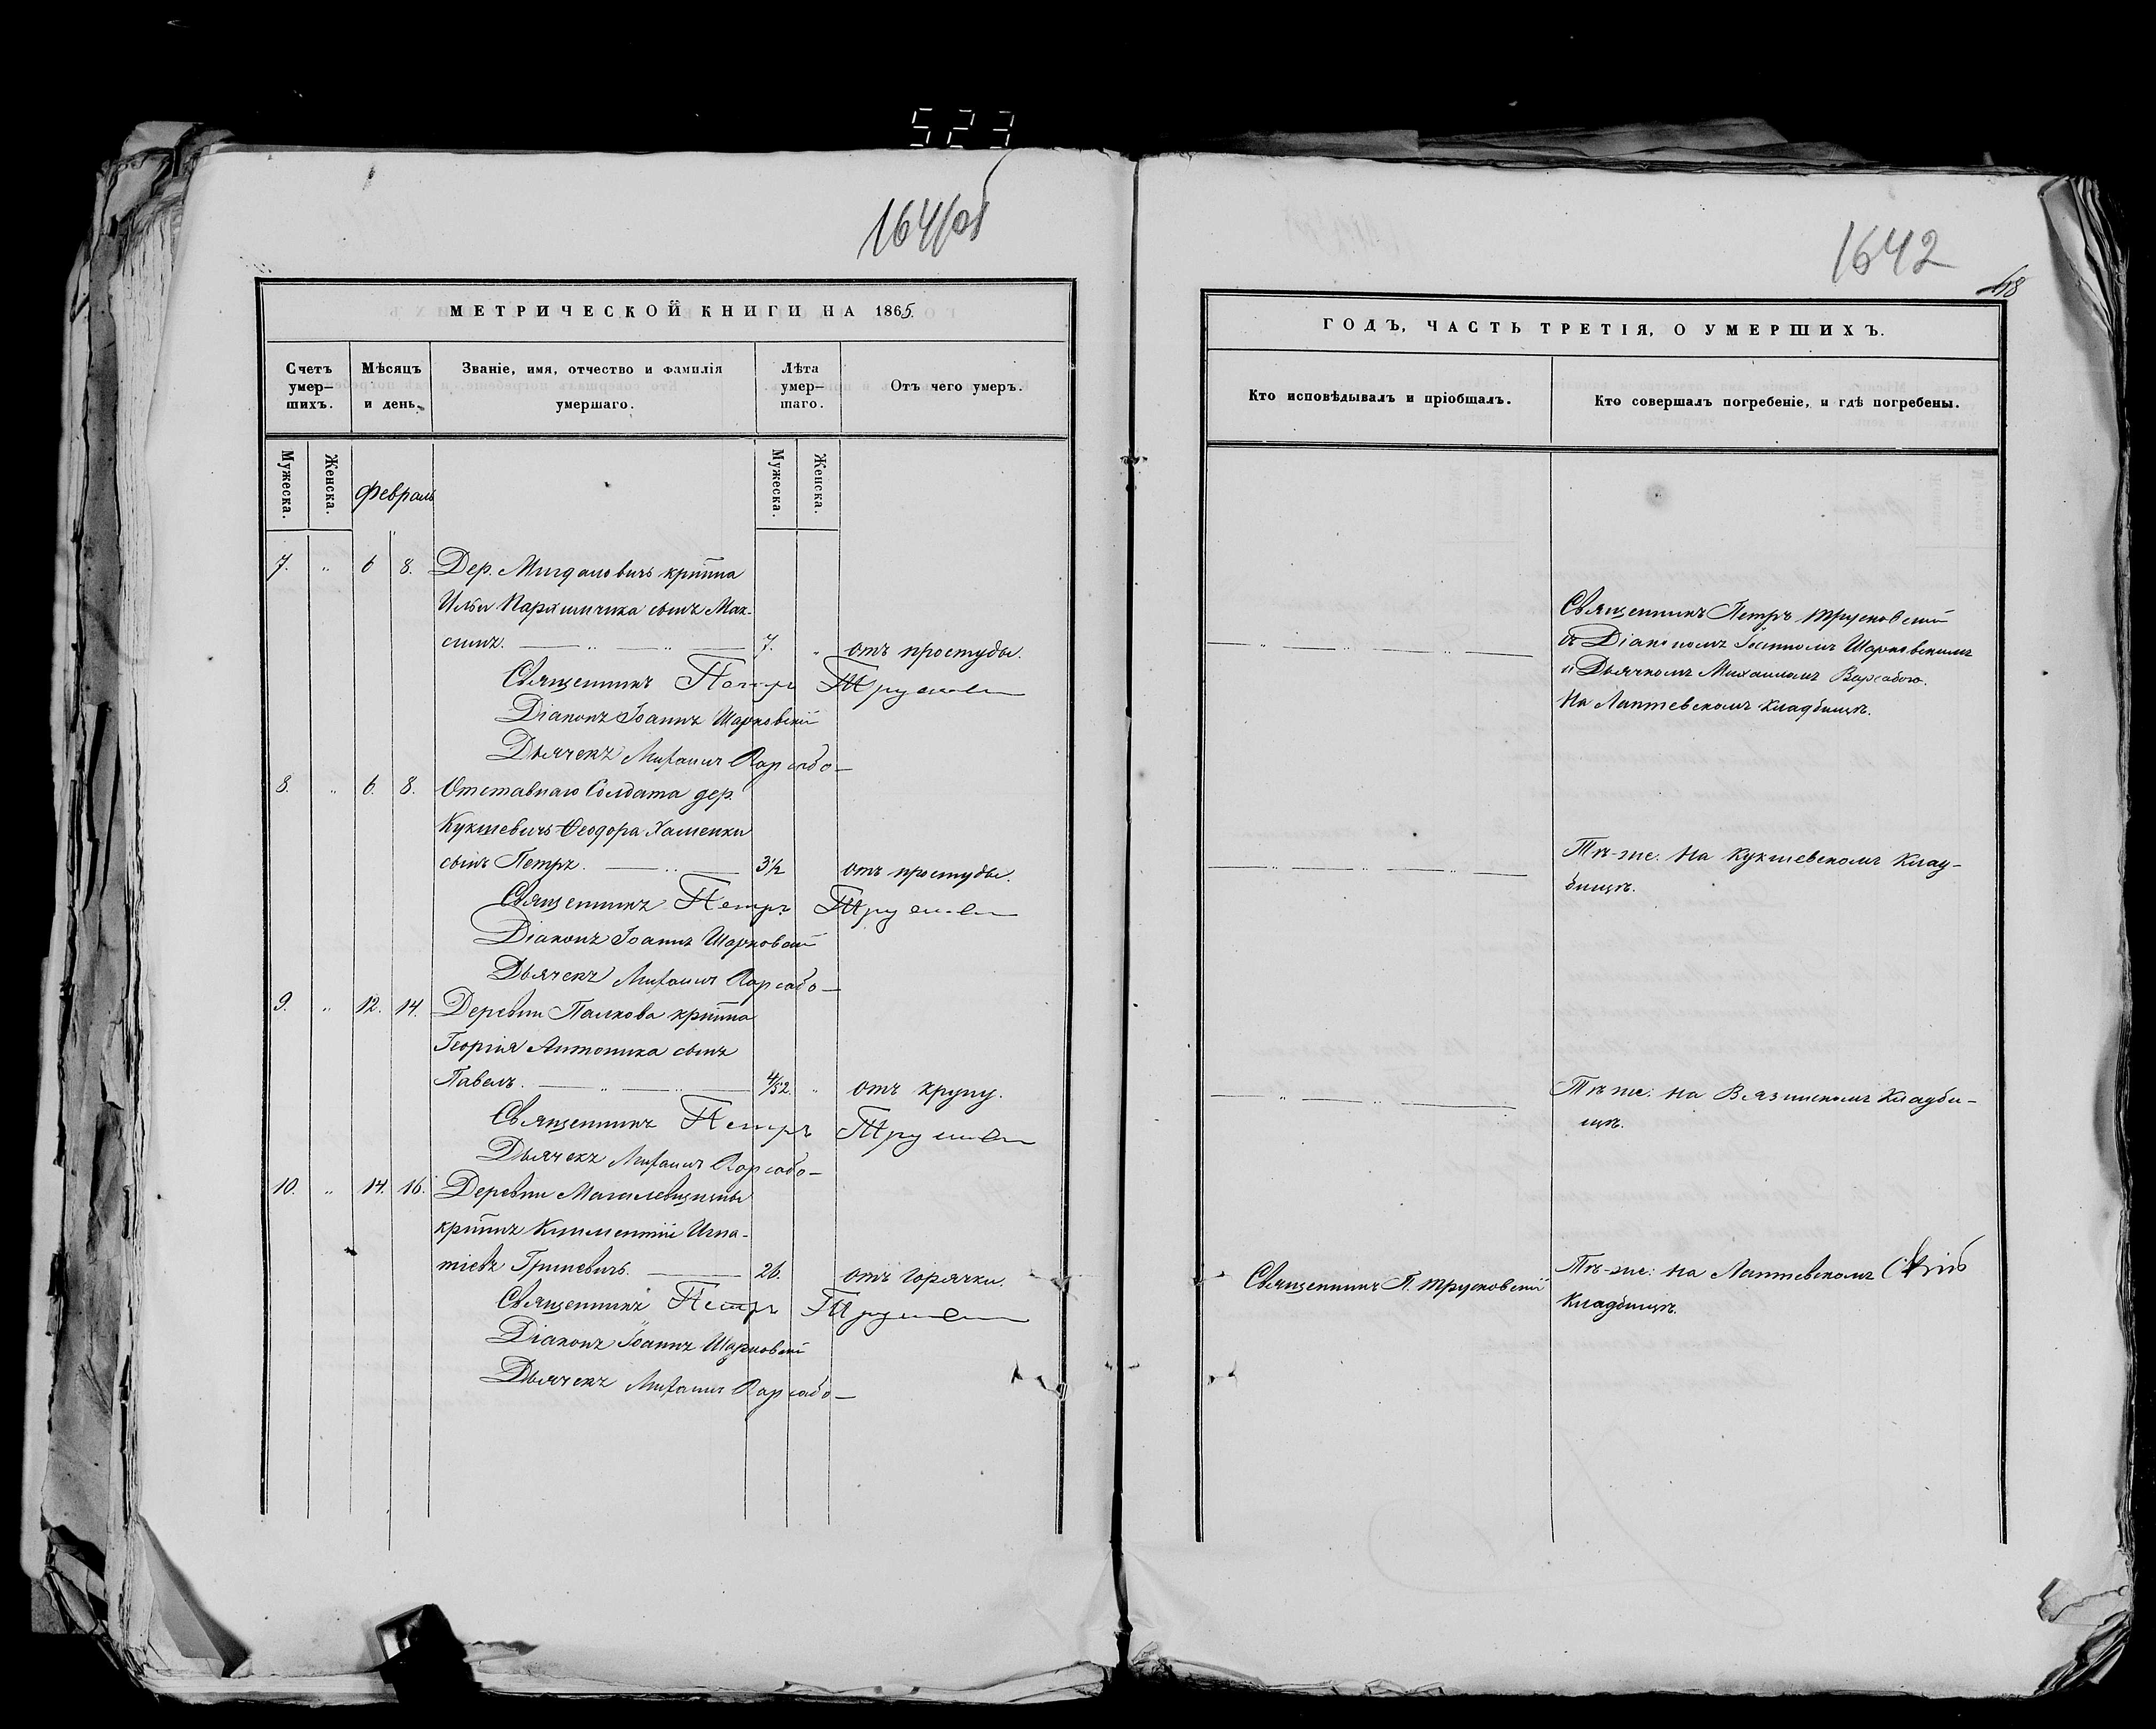 523
1641об
МЕТРИЧЕСКОЙ КНИГИ НА 1865.
Счетъ умер-шихъ.
Мѣсяцъ и день.
Званіе, имя, отчество и фамилія умершаго.
Лѣта умер-шаго.
Отъ чего умеръ.
Мужеска.
Женска.
Февраль
Мужеска.
Женска.
7. " 6 8. Дер. Мигдаловичъ кр̃тина
Ильи Парѫимчика сынъ Мак-
симъ. 7. " отъ простуды.
Священникъ Петръ Трусковскій
Діаконъ Іоаннъ Шарковскій
Дьячекъ Михаилъ Варсабо
8. " 6. 8. Отставнаго Солдата дер.
Кукшевичъ Ѳеодора Хаменки
сынъ Петръ. 3½ отъ простуды.
Священникъ Петръ Трусковскій
Діаконъ Іоаннъ Шарковскій
Дьячекъ Михаилъ Варсабо
9. " 12. 14. Деревни Палкова кр̃тина
Георгія Антоника сынъ
Павелъ. 4/52. " отъ крупу.
Священникъ Петръ Трусковскій
Дьячекъ Михаилъ Варсабо
10. " 14. 16. Деревни Магалевщизны
кр̃тинъ Климентій Игна-
тіевъ Гриневичъ. 26. отъ горячки.
Священникъ Петръ Трусковскій
Діаконъ Іоаннъ Шарковскій
Дьячекъ Михаилъ Варсабо
1642
ГОДЪ, ЧАСТЬ ТРЕТІЯ, О УМЕРШИХЪ.
Кто исповѣдывалъ и пріобщалъ.
Кто совершалъ погребеніе, и гдѣ погребены.
Священникъ Петръ Трусковскій
съ Діакономъ Іоанномъ Шарковскимъ
и Дьячкомъ Михаиломъ Варсабою.
На Лаптевскомъ кладбищѣ.
Тѣ-же. На Кукшевскомъ клад-
бищѣ.
Тѣ же: на Вязинскомъ кладби-
щѣ.
Священникъ П. Трусковскій
Тѣ-же: на Лаптевскомъ
Кладбищѣ.